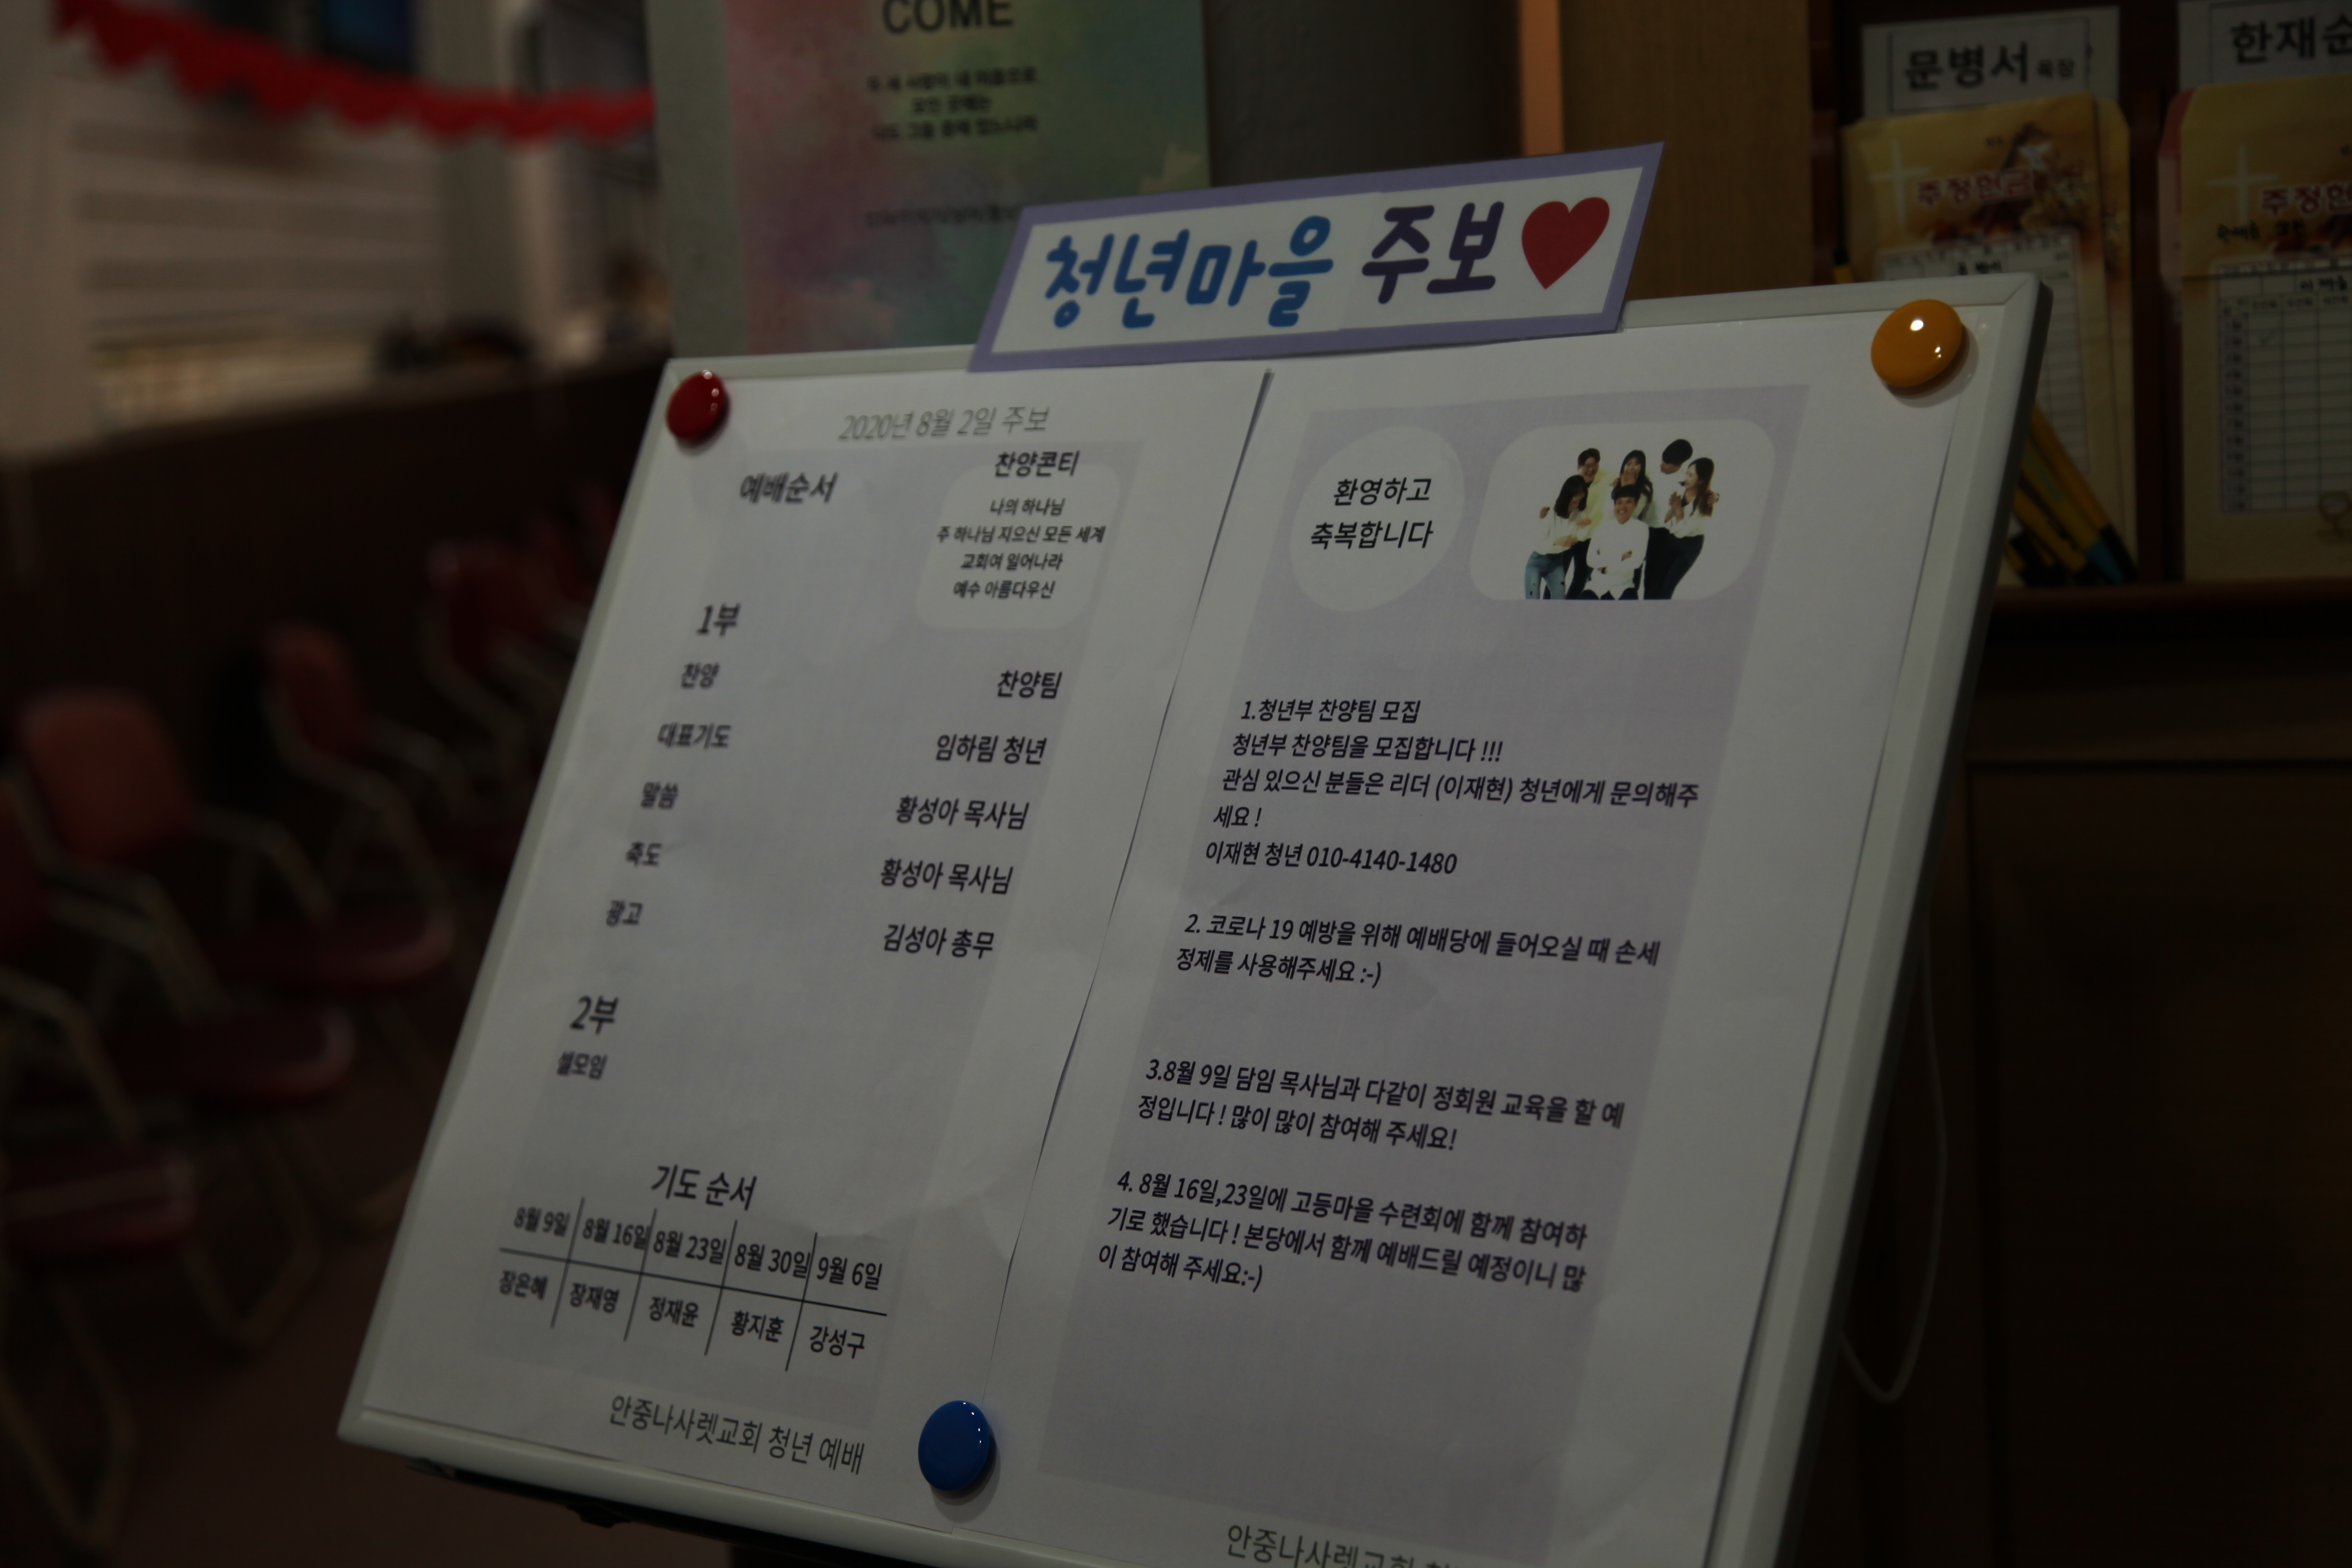 COME
문병서 목장
한재순
주정헌금
청년마을 주보
2020년 8월 2일 주보
예배순서
찬양콘티
나의 하나님
주 하나님 지으신 모든 세계
교회여 일어나라
예수 아름다우신
1부
찬양 찬양팀
대표기도 임하림 청년
말씀 황성아 목사님
축도 황성아 목사님
광고 김성아 총무
2부
셀모임
기도 순서
8월 9일 8월 16일 8월 23일 8월 30일 9월 6일
장은혜 장재영 정재윤 황지훈 강성구
안중나사렛교회 청년 예배
환영하고
축복합니다
1.청년부 찬양팀 모집
청년부 찬양팀을 모집합니다 !!!
관심 있으신 분들은 리더 (이재현) 청년에게 문의해주
세요 !
이재현 청년 010-4140-1480
2. 코로나 19 예방을 위해 예배당에 들어오실 때 손세
정제를 사용해주세요 :-)
3.8월 9일 담임 목사님과 다같이 정회원 교육을 할 예
정입니다 ! 많이 많이 참여해 주세요!
4. 8월 16일,23일에 고등마을 수련회에 함께 참여하
기로 했습니다 ! 본당에서 함께 예배드릴 예정이니 많
이 참여해 주세요:-)
안중나사렛교회